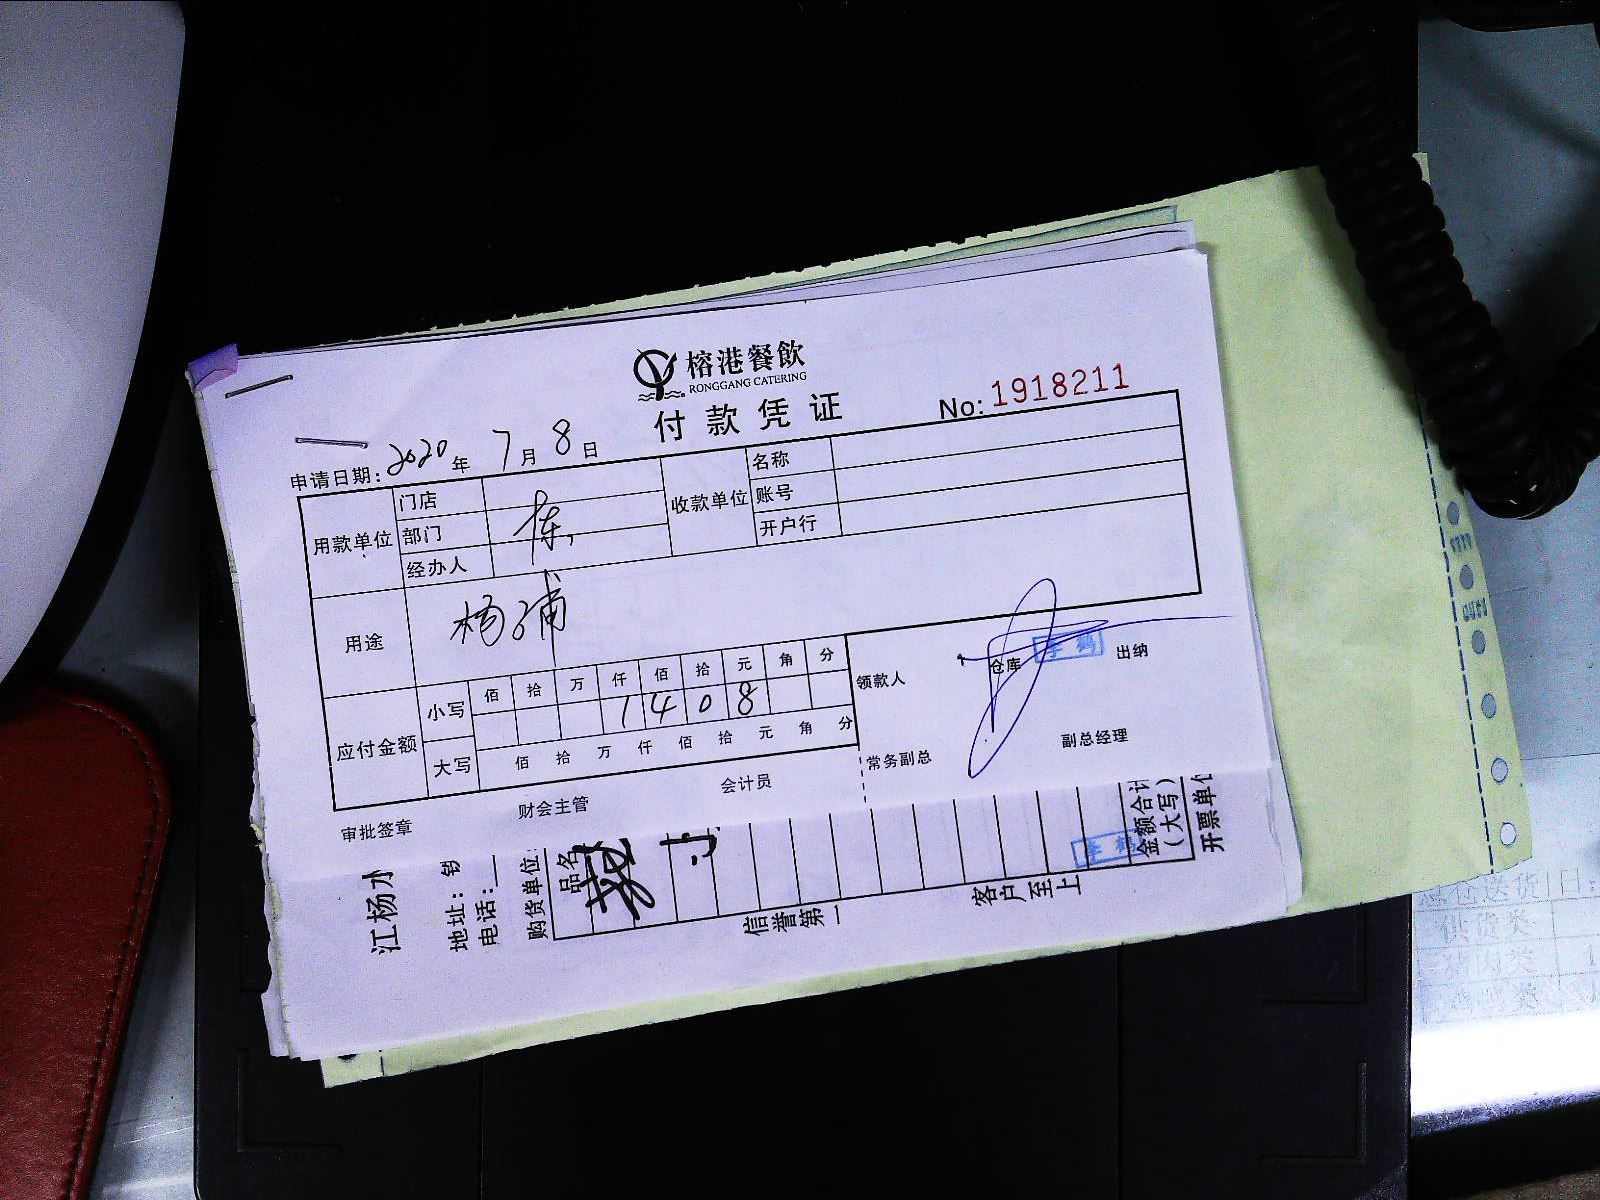 榕港餐飲
RONGGANG CATERING
付款凭证
No: 1918211
申请日期: 2020 年 7 月 8 日
用款单位 门店
部门
经办人
收款单位 名称
账号
开户行
用途 杨浦
应付金额 小写 佰 拾 万 仟 佰 拾 元 角 分
1 4 0 8
大写 佰 拾 万 仟 佰 拾 元 角 分
领款人 仓库 出纳
常务副总 副总经理
审批签章 财会主管 会计员
江杨水
地址:
电话:
购货单位:
品名
信誉第一
客户至上
金额合计
(大写)
开票单位
仓送货 日:
供货类
猪肉类 1